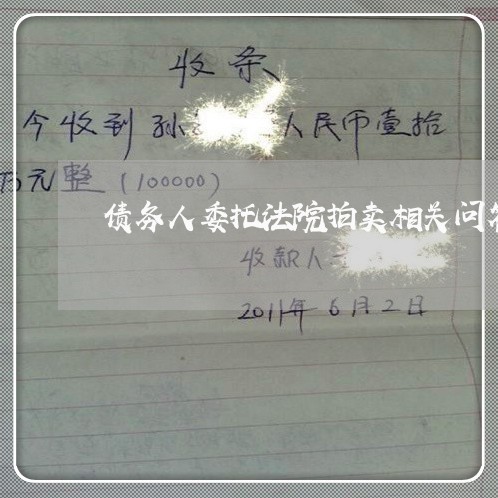 收条
今收到孙 人民币壹拾
万元整（100000）
债务人委托法院拍卖相关问
收款人
2011年6月2日